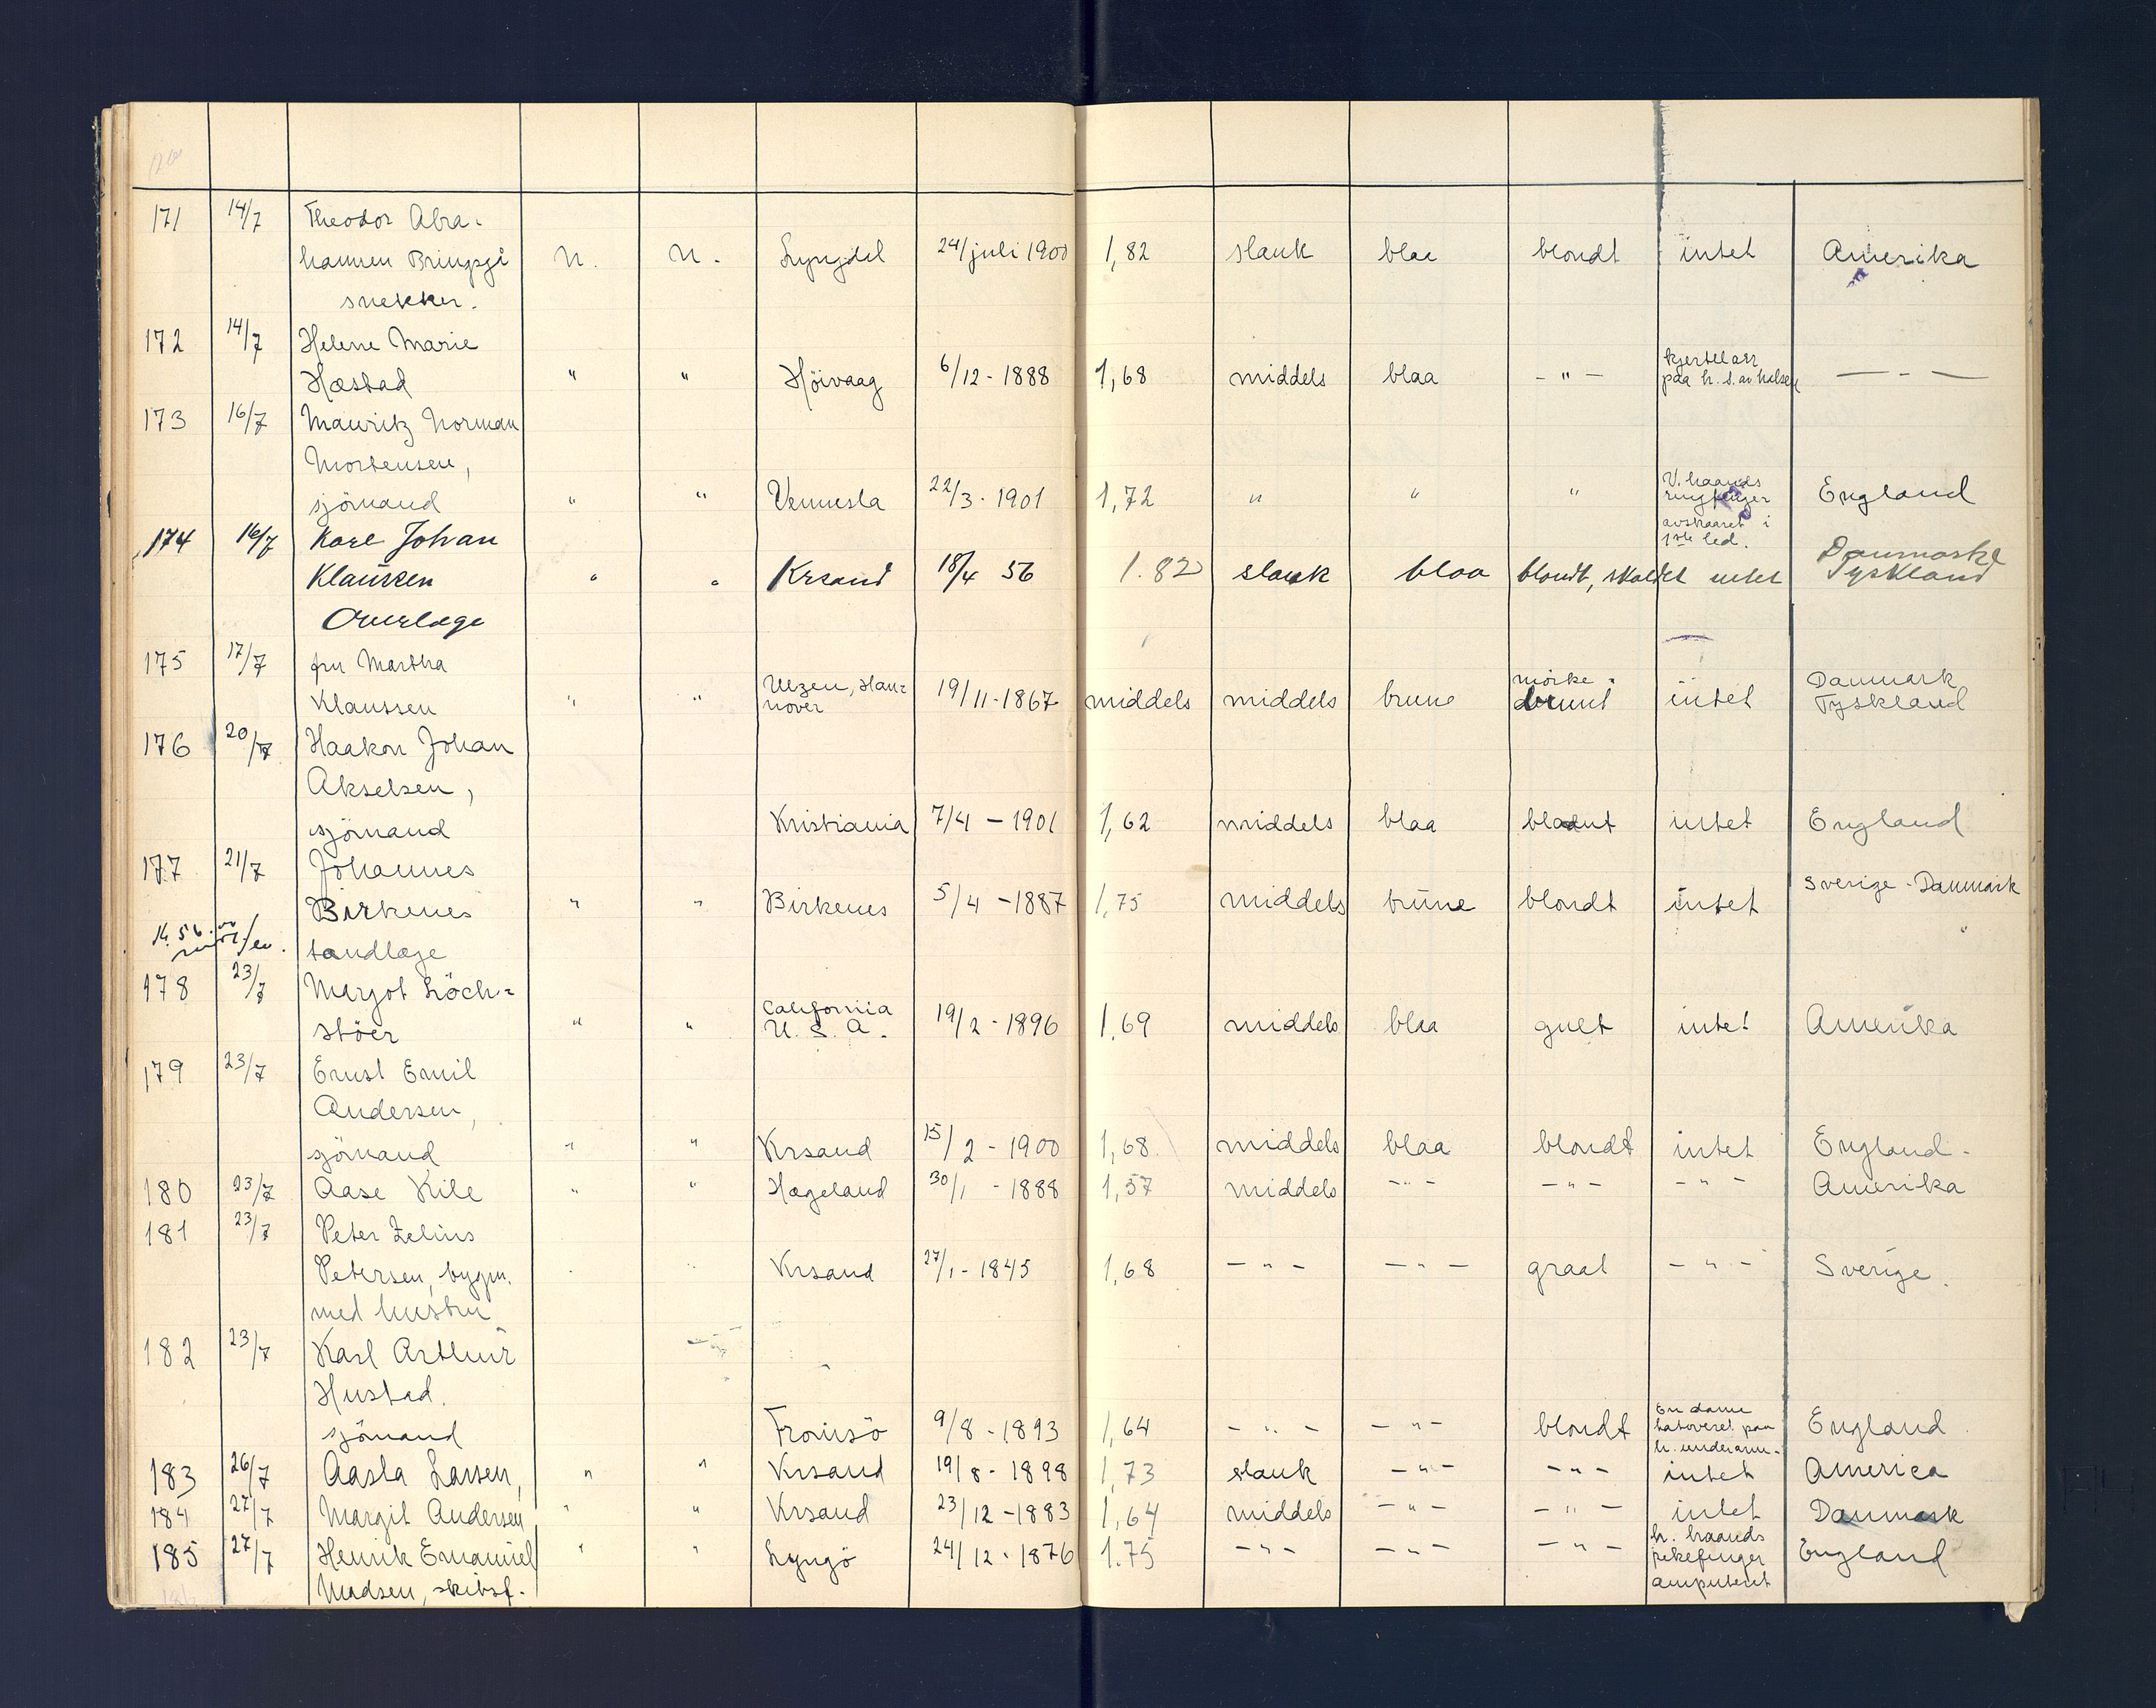 171 14/7 Theodor Abra-
hamsen Bringsji N. N. Lyngdal 24/juli 1900 1,82 slank blaa blondt intet Amerika
snekker.
172 14/7 Helene Marie
Hæstad " " Höivaag 6/12 - 1888 1,68 middels blaa - " - kjertelarr paa h. s. av halsen - " -
173 16/7 Mauritz Norman
Mortensen,
sjömand " " Vennesla 22/3 - 1901 1,72 " " " V. haands ringfinger avskaaret i 1ste led. England
174 16/7 Karl Johan
Klaussen " " Krsand 18/4 56 1.82 slank blaa blondt, skaldet intet Danmark Tyskland
Overlæge
175 17/7 fru Martha
Klaussen " " Ulzen, Han-nover 19/11-1867 middels middels brune mörke-brunt intet Danmark Tyskland
176 20/7 Haakon Johan
Akselsen,
sjömand Kristiania 7/4 - 1901 1,62 middels blaa intet England
177 21/7 Johannes
Birkenes " " Birkenes 5/4 - 1887 1,75 middels brune blondt intet Sverige - Danmark
tandlæge
178 23/7 Margot Löch-
stöer " " California U. S. A. 19/2 - 1896 1.69 middels blaa gult intet Amerika
179 23/7 Ernst Emil
Andersen,
sjömand " " Krsand 15/2 - 1900 1,68 middels blaa blondt intet England -
180 23/7 Aase Kile " " Hægeland 30/1 - 1888 1,57 middels - " - - " - - " - Amerika
181 23/7 Peter Zelius
Petersen, bygm. " " Krsand 27/1 - 1845 1,68 - " - - " - graat - " - Sverige.
med hustru
182 23/7 Karl Arthur
Hustad.
sjömand Tromsö 9/8 - 1893 1,64 - " - - " - blondt En dame tatoveret paa h. underarm - England
183 26/7 Aasta Larsen, " " Krsand 19/8 - 1898 1,73 slank - " - - " - intet America
184 27/7 Margit Andersen " " Krsand 23/12 - 1883 1,64 middels - " - - " - intet Danmark
185 27/7 Henrik Emanuel " " Lyngö 24/12 - 1876 1.75 - " - - " - - " - h. haands pekefinger amputeret England
Madsen, skibsf.